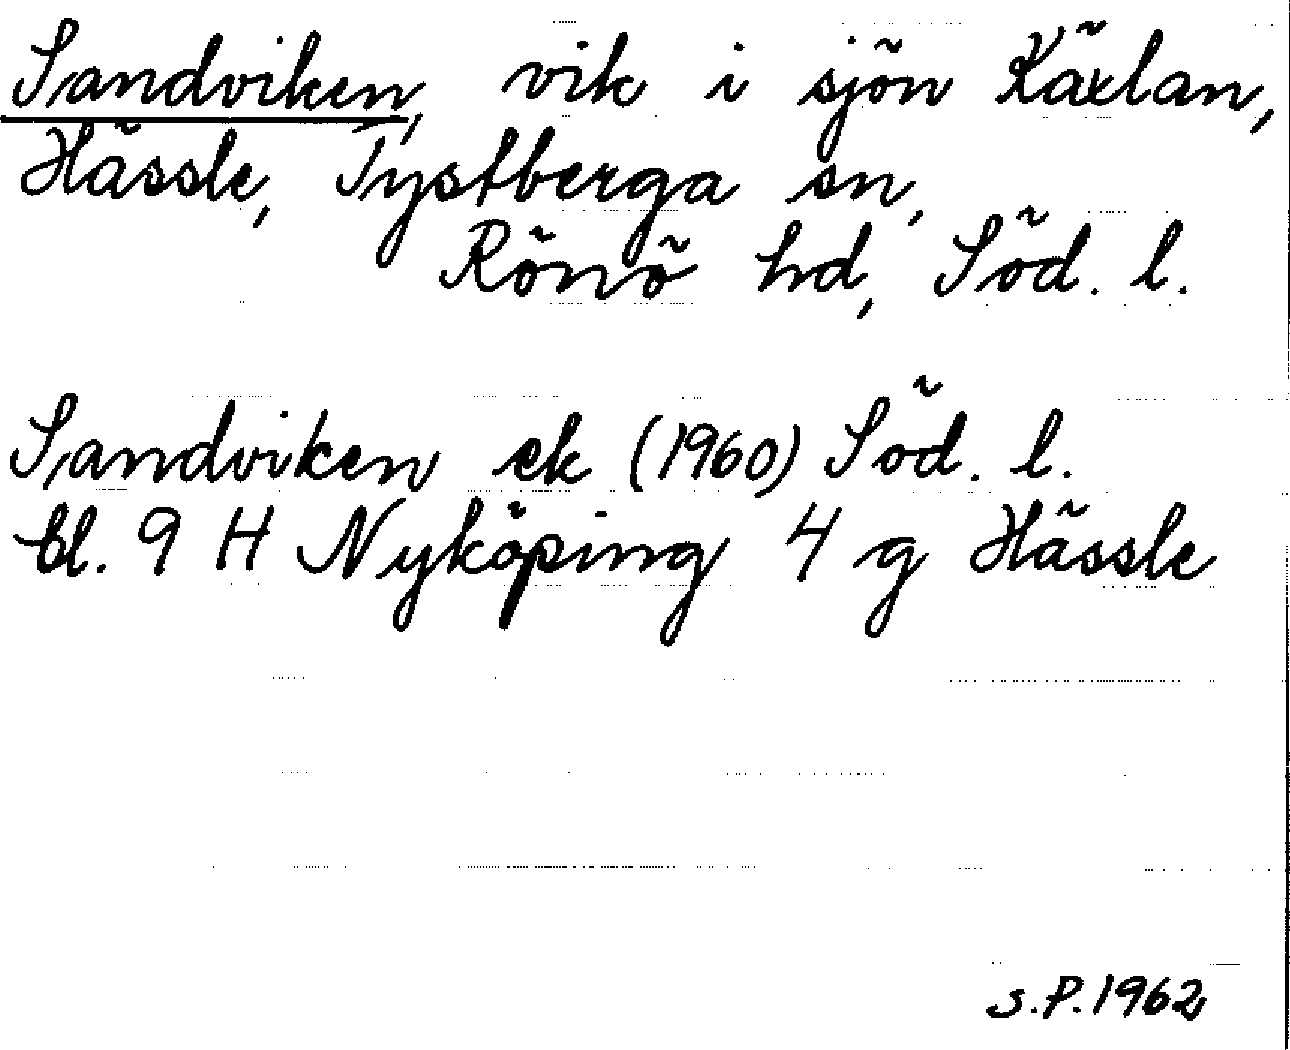 Sandviken, vik i sjön Käxlan,
Hässle, Tystberga sn,
Rönö hd, Söd. l.
Sandviken ek (1960) Söd. l.
bl. 9 H Nyköping 4 g Hässle
S.P. 1962